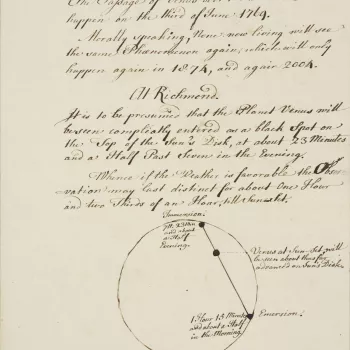 the Passage of Venus
happen on the Third of June 1769.
Morally speaking, None now living will see
the same Phænomenon again; which will only
happen again in 1874, and again 2004.
At Richmond.
It is to be presumed that the Planet Venus will
be seen compleatly entered as a black Spot on
the Top of the Sun's Disk, at about 23 Minutes
and a Half Past Seven in the Evening.
Whence if the Weather is favorable the Obser
vation may last distinct for about One Hour
and two Thirds of an Hour, till Sunset.
Immersion.
and about
a Half
Evening.
Venus at Sun-Set will
be seen about thus far
advanced on Sun's Disk.
Emersion.
1 Hour 15 Minutes
and about a Half
in the Morning.